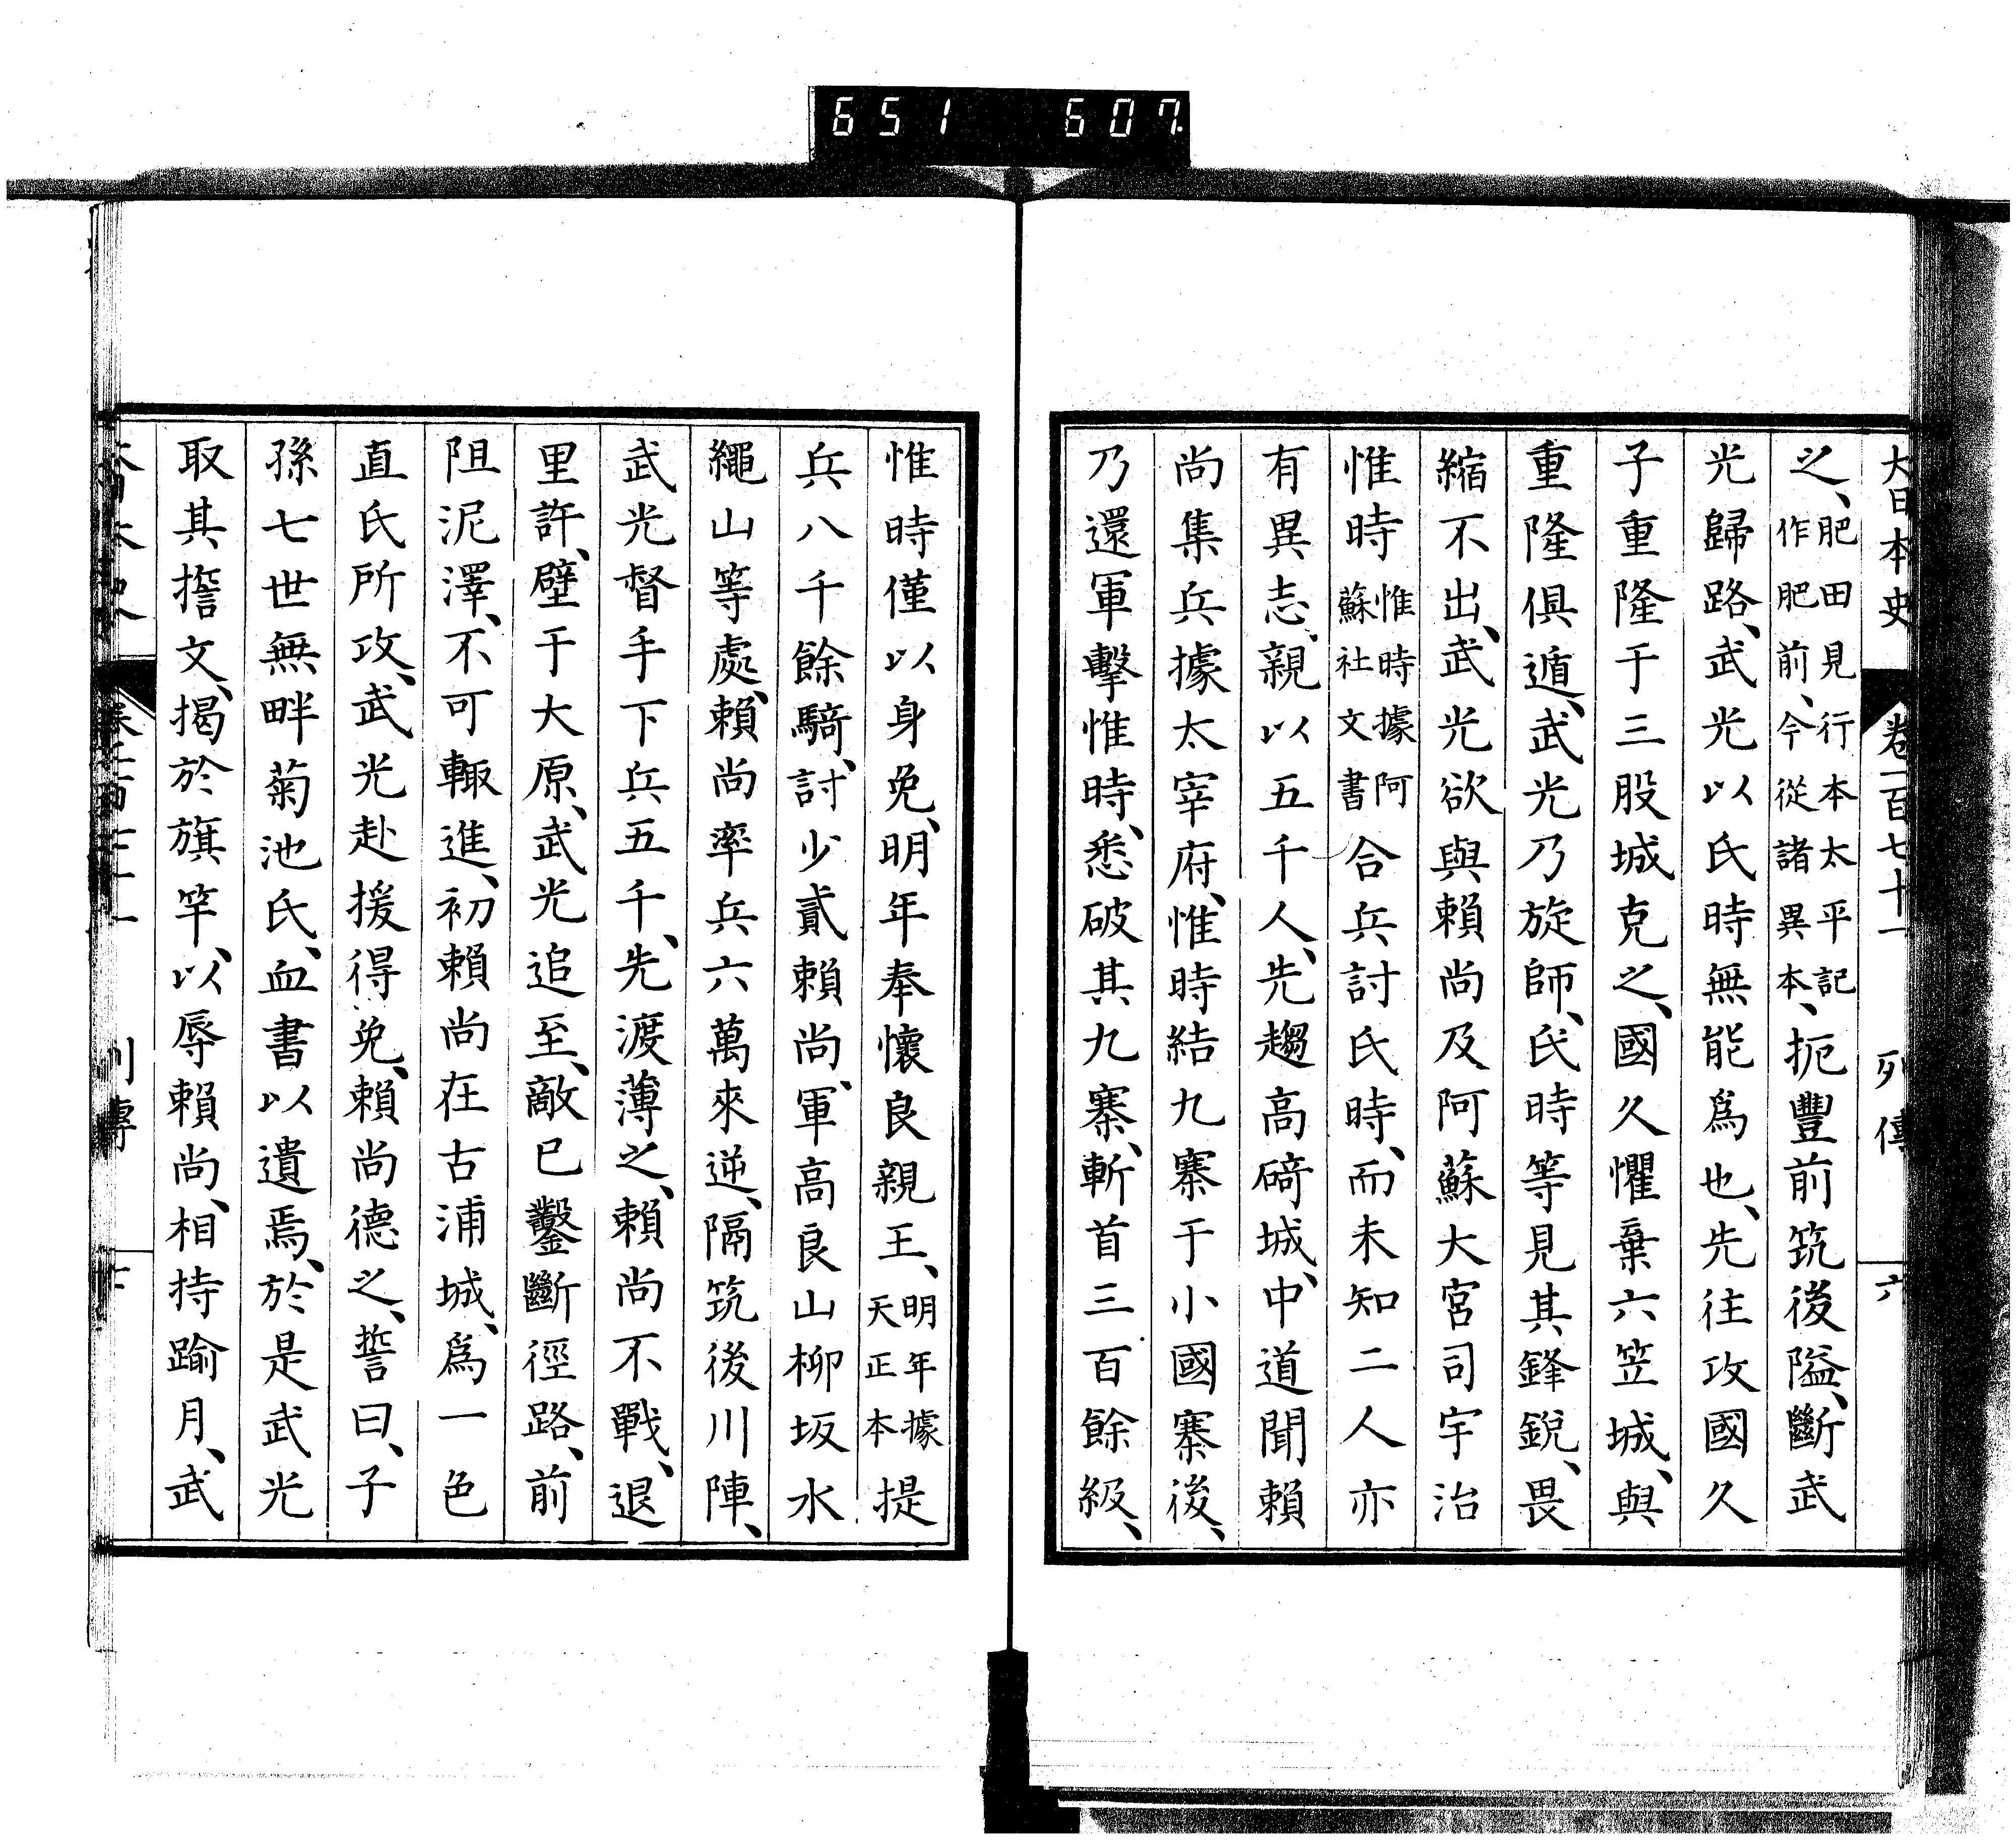 651 607
大日本史 卷一百七十一 列傳 六
之、肥田見行本太平記作肥前、今從諸異本、扼豐前筑後隘、斷武
光歸路、武光以氏時無能爲也、先往攻國久
子重隆于三股城克之、國久懼棄六笠城、與
重隆俱遁、武光乃旋師、氏時等見其鋒銳、畏
縮不出、武光欲與賴尚及阿蘇大宮司宇治
惟時惟時據阿蘇社文書合兵討氏時、而未知二人亦
有異志、親以五千人、先趨高碕城、中道聞賴
尚集兵據太宰府、惟時結九寨于小國寨後、
乃還軍擊惟時、悉破其九寨、斬首三百餘級、
惟時僅以身免、明年奉懷良親王、明年據天正本提
兵八千餘騎、討少貳賴尚、軍高良山柳坂水
繩山等處、賴尚率兵六萬來逆、隔筑後川陣、
武光督手下兵五千、先渡薄之、賴尚不戰、退
里許、壁于大原、武光追至、敵已鑿斷徑路、前
阻泥澤、不可輙進、初賴尚在古浦城、爲一色
直氏所攻、武光赴援得免、賴尚德之、誓曰、子
孫七世無畔菊池氏、血書以遺焉、於是武光
取其擔文、揭於旗竿、以辱賴尚、相持踰月、武